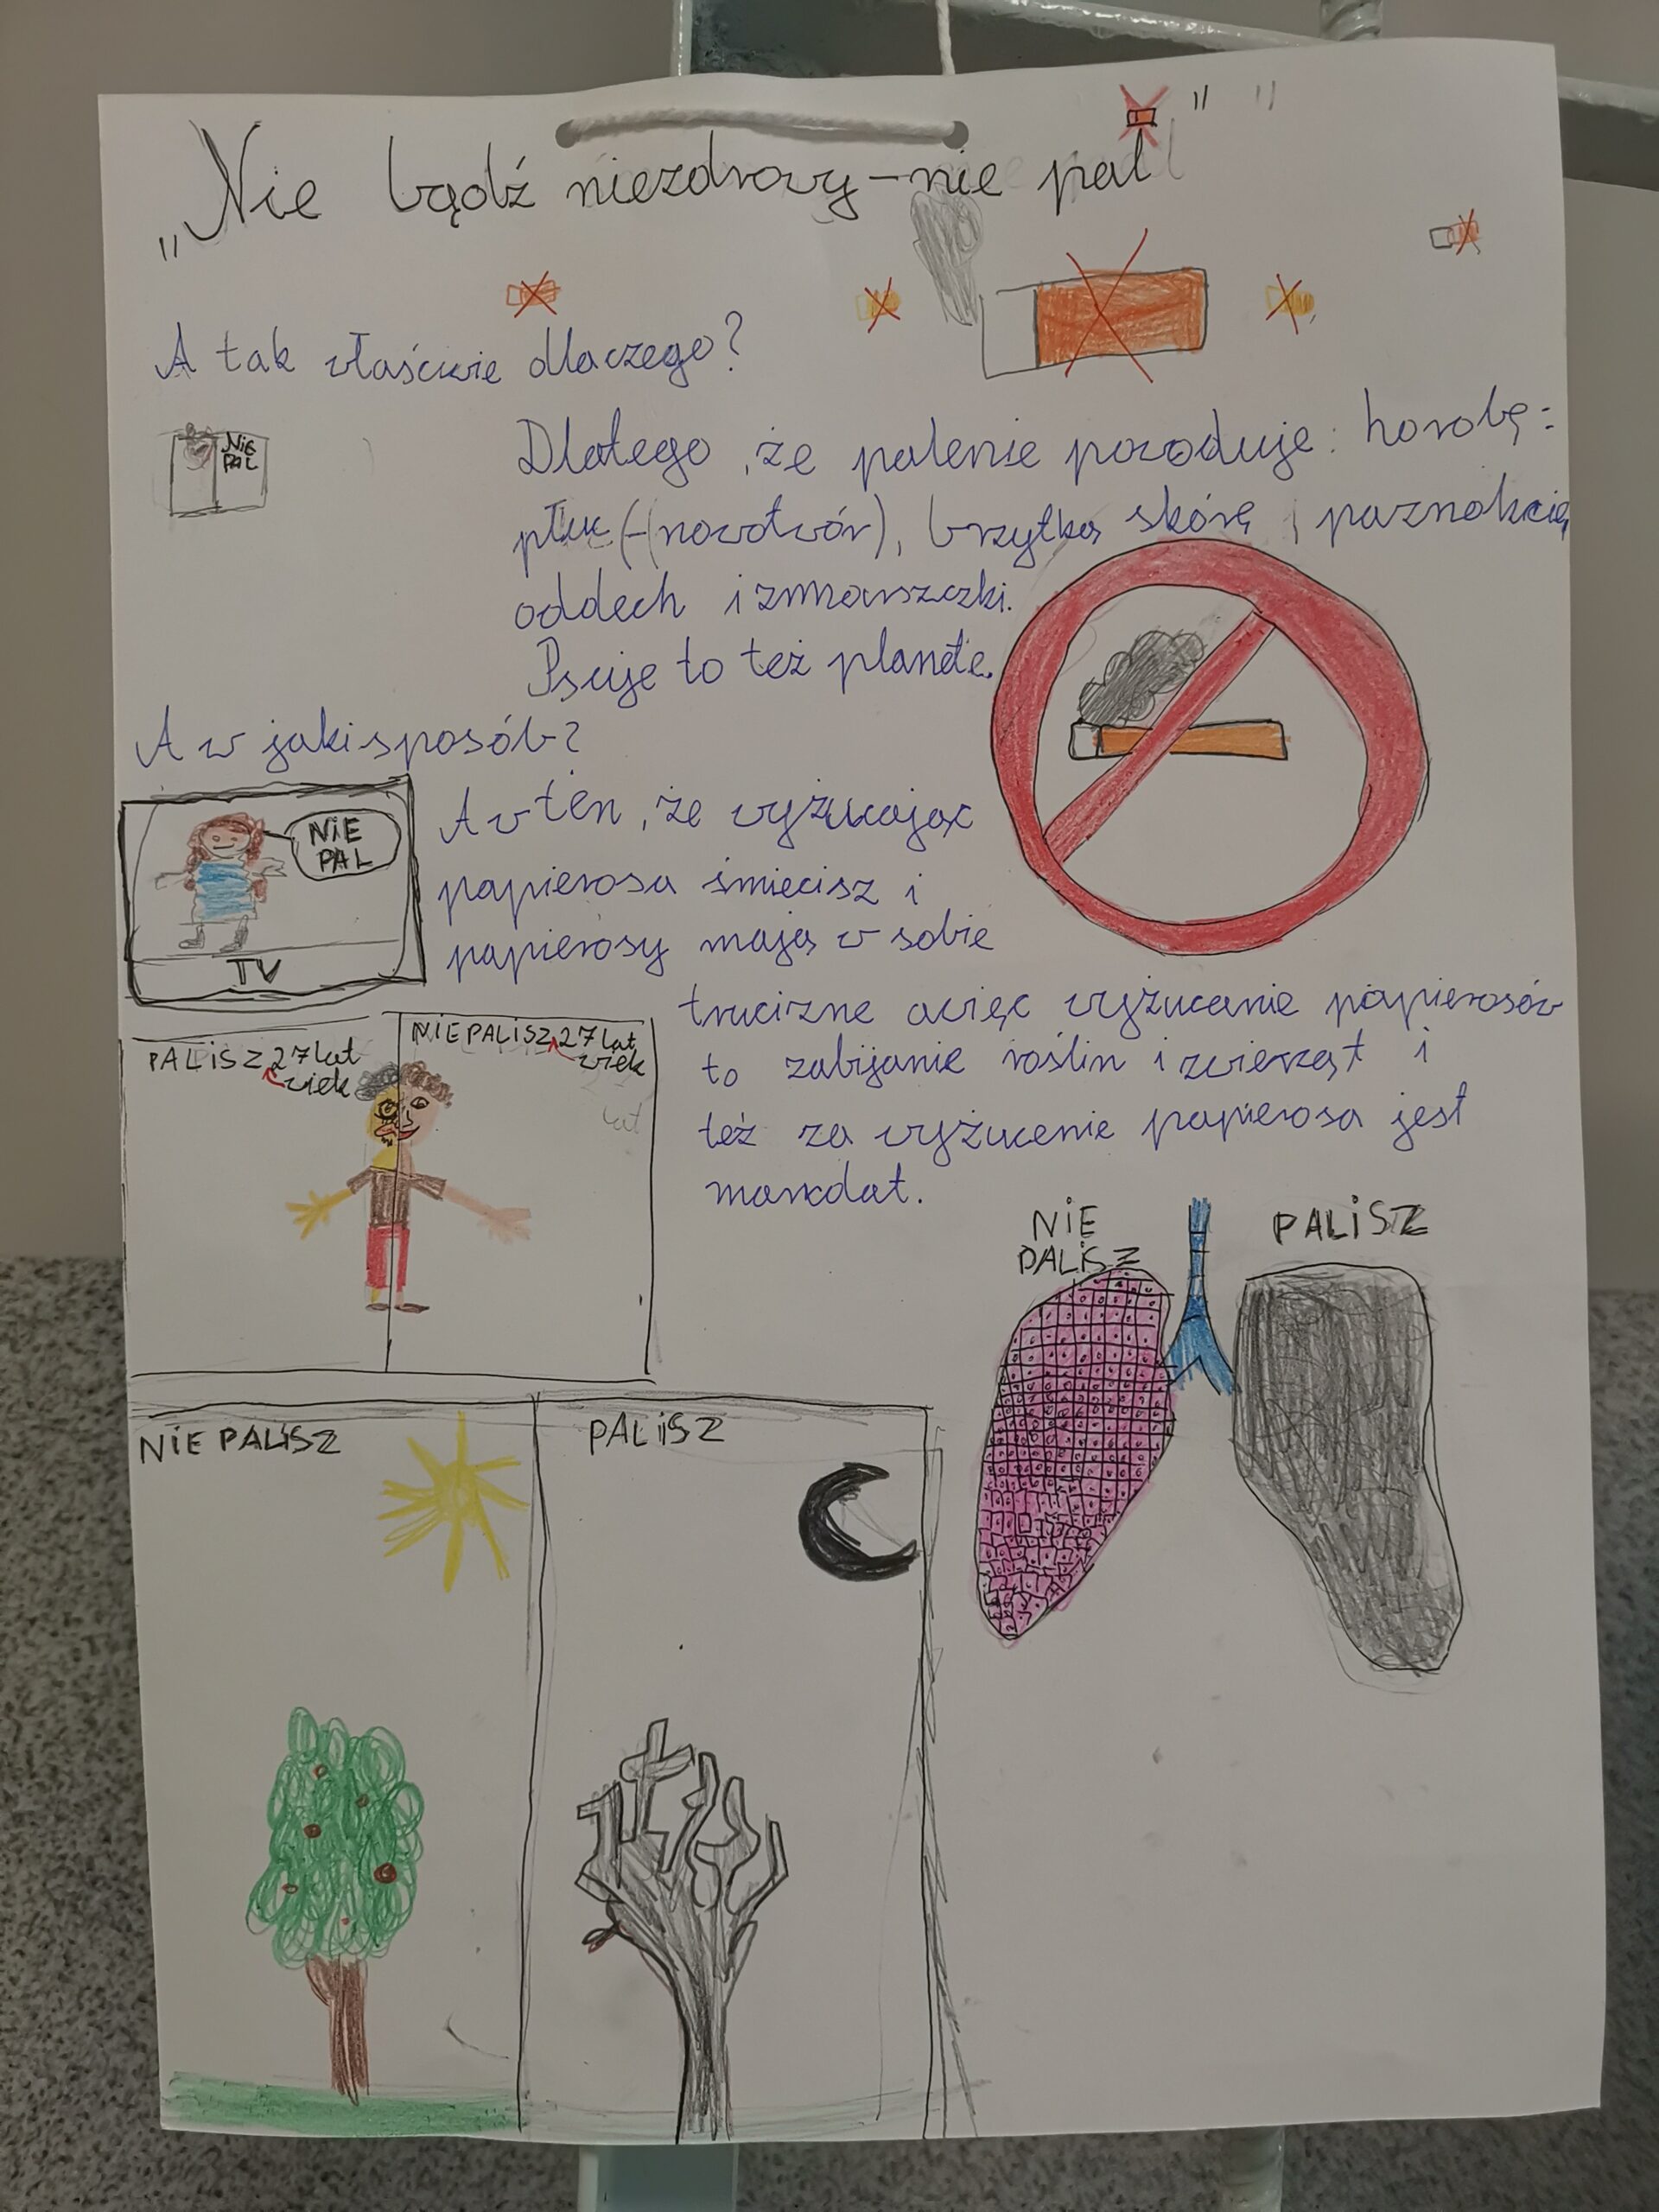 „Nie bądź niezdrowy – nie pal"
A tak właściwie dlaczego?
NiE
PAL
Dlatego, że palenie powoduje: horobę:
płuc (-(nowotwór), brzytką skórę, paznokcię,
oddech i zmarszczki.
Psuje to też planetę.
A w jaki sposób?
NiE
PAL
TV
A w ten, że wyżucając
papierosa śmiecisz i
papierosy mają w sobie
truciznę a więc wyżucanie papierosów
to zabijanie roślin i zwierząt i
też za wyżucenie papierosa jest
mandat.
PALiSZ 27 lat
wiek
NIE PALiSZ 27 lat
wiek
lat
NiE
PALiSZ
PALiSZ
NiE PALiSZ
PALiSZ